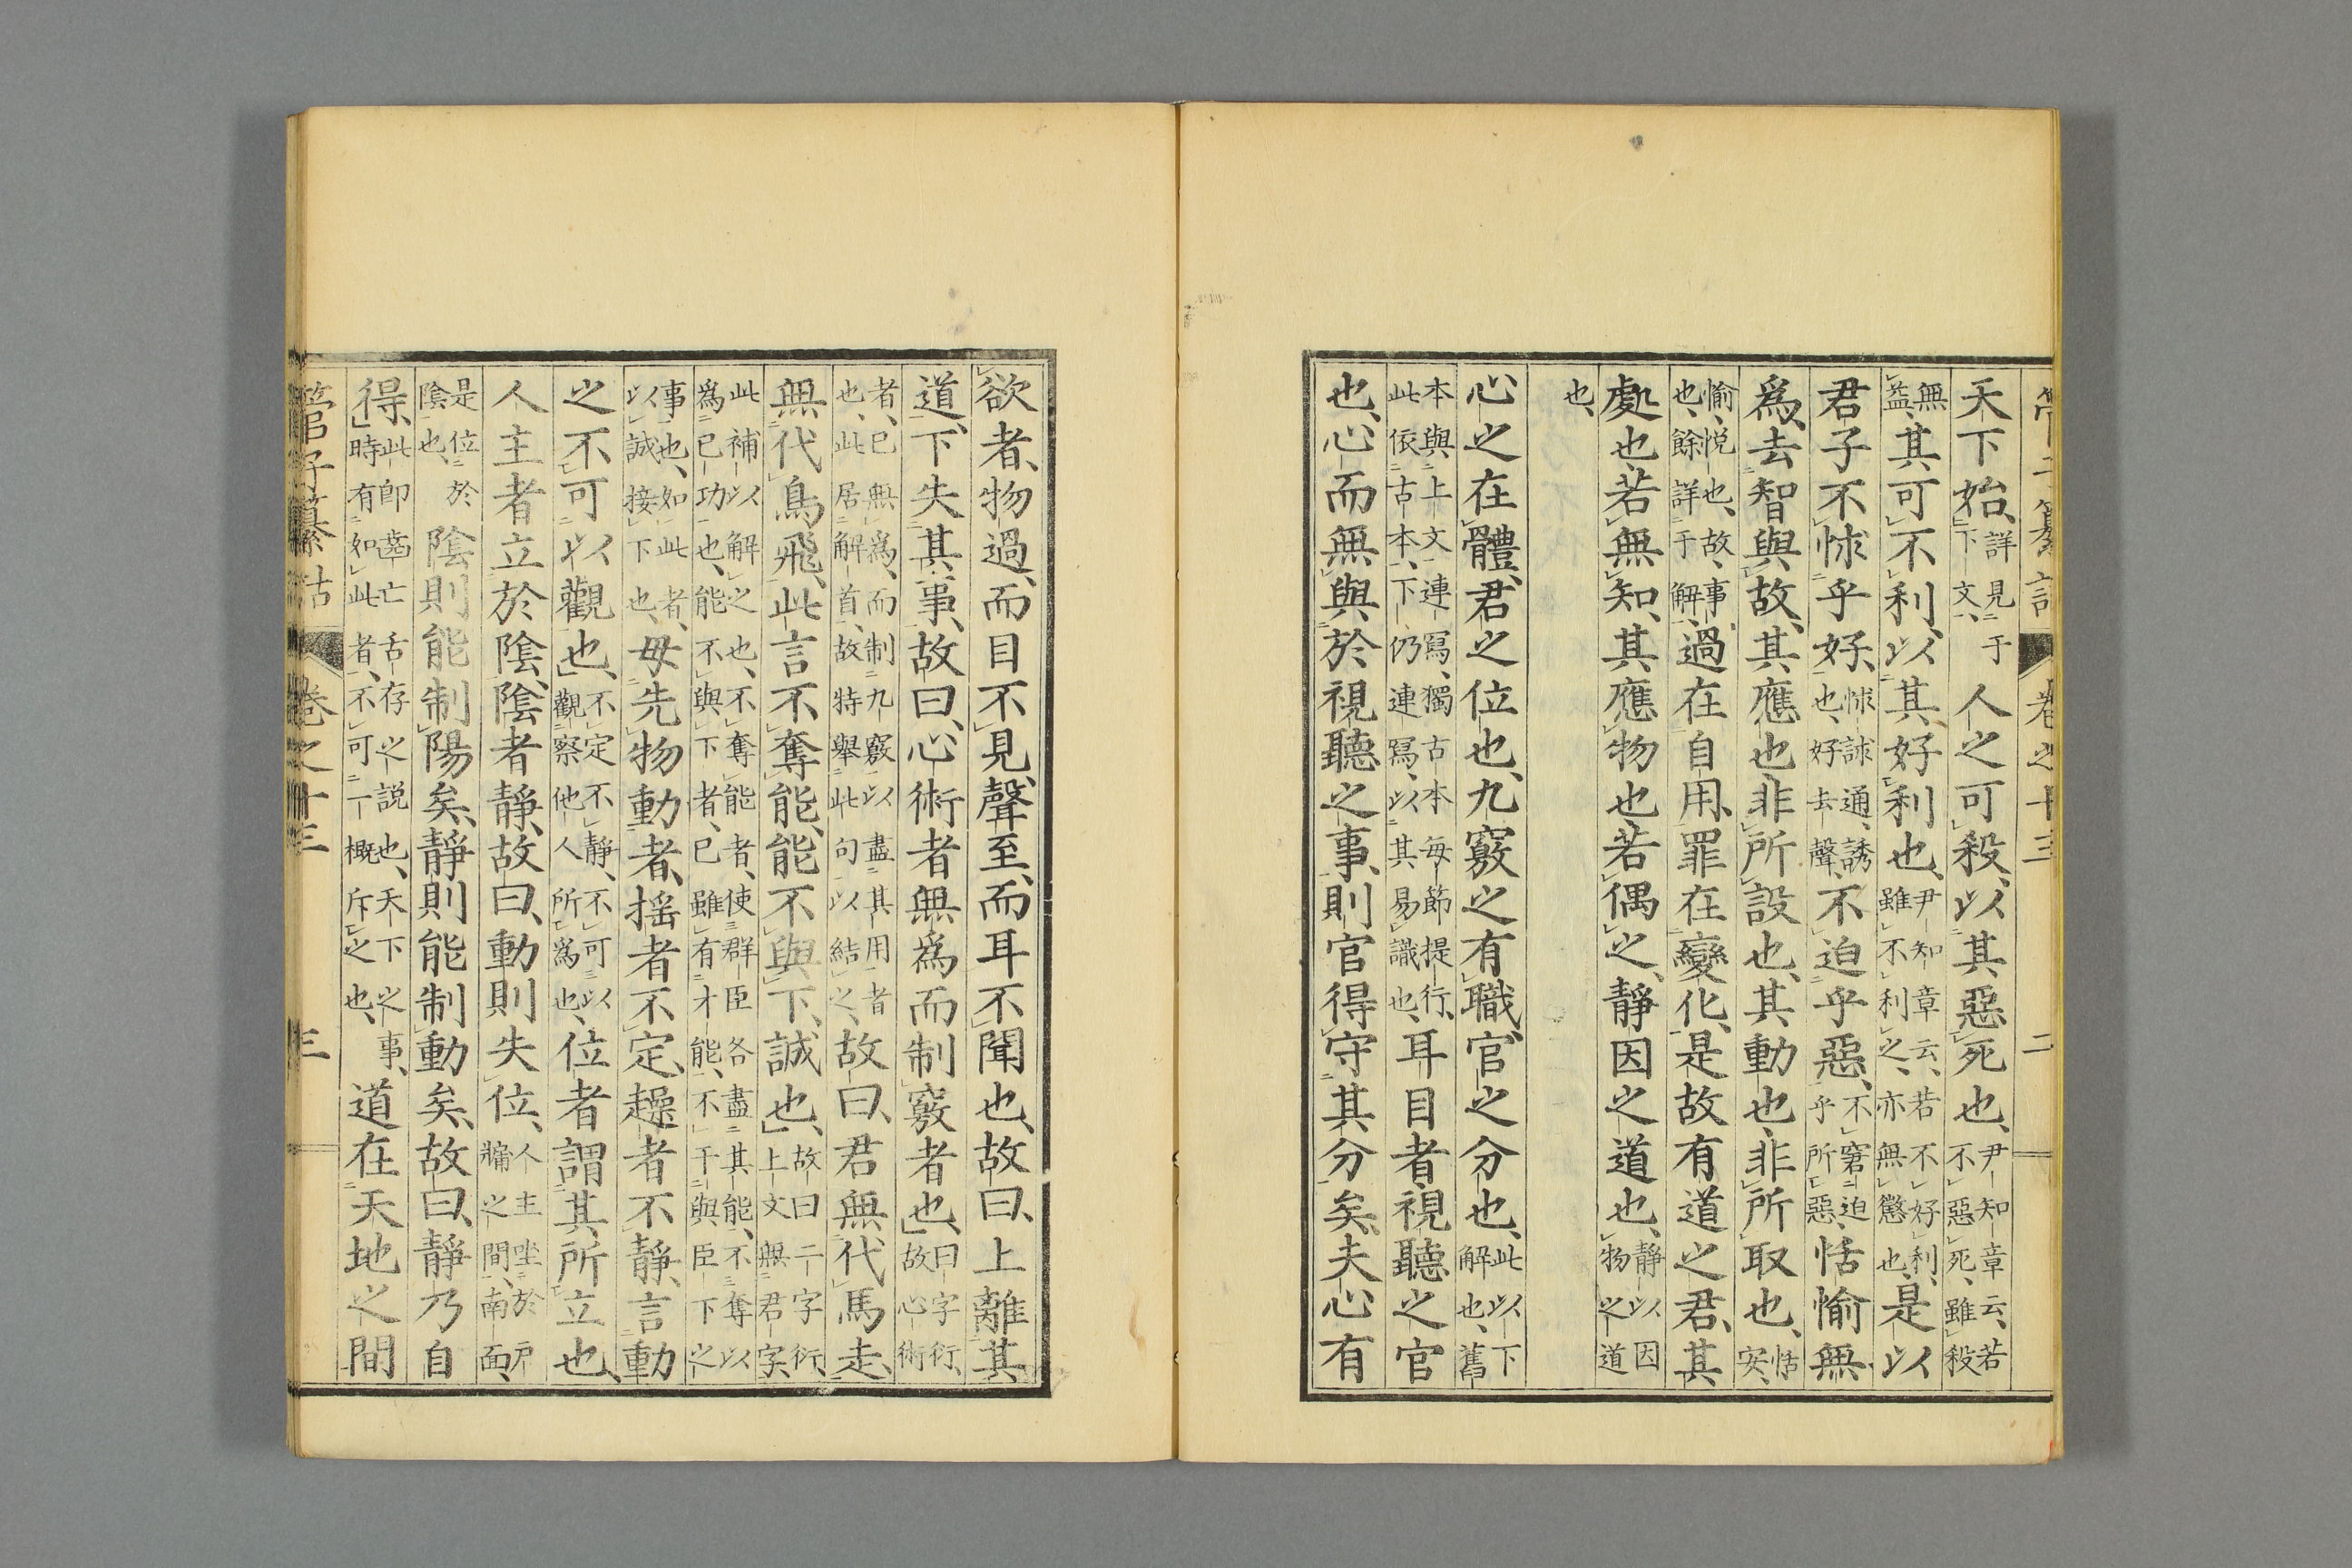 管子纂詁 卷之十三 二
天下始、詳見于下文、人之可殺、以其惡死也、尹知章云、若不惡死、雖殺
無益、其可不利、以其好利也、尹知章云、若不好利、雖不利之、亦無懲也、是以
君子不怵乎好、怵訹通、誘也、好去聲、不迫乎惡、不窘迫乎所惡、恬愉無
爲、去智與故、其應也非所設也、其動也、非所取也、恬安、
愉、悦也、故、事也、餘詳于解、過在自用、罪在變化、是故有道之君、其
處也若無知、其應物也若偶之、靜因之道也、靜以因物之道
也、
心之在體、君之位也、九竅之有職、官之分也、此以下解也、舊
本與上文連寫、獨古本每節提行、此依古本、下仍連寫、以其易識也、耳目者、視聽之官
也、心而無與於視聽之事、則官得守其分矣、夫心有
欲者、物過、而目不見、聲至、而耳不聞也、故曰、上離其
道、下失其事、故曰、心術者無爲而制竅者也、曰字衍、故心術
者、已無爲、而制九竅、以盡其用者也、此居解首、故特舉此句以結之、故曰、君無代馬走、
無代鳥飛、此言不奪能、能不與下、誠也、故曰二字衍、上文無君字、
此補以解之也、不奪能者、使群臣各盡其能、不奪以爲已功也、能不與下者、已雖有才能、不干與臣下之
事也、如此者、以誠接下也、毋先物動者、搖者不定、趮者不靜、言動
之不可以觀也、不定不靜、不可以觀察他人所爲也、位者謂其所立也、
人主者立於陰、陰者靜、故曰、動則失位、人主坐於戶牖之間、南面、
是位於陰也、陰則能制陽矣、靜則能制動矣、故曰、靜乃自
得、此即齒亡舌存之説也、天下之事、時有如此者、不可一概斥之也、道在天地之間
管子纂詁 卷之十三 三